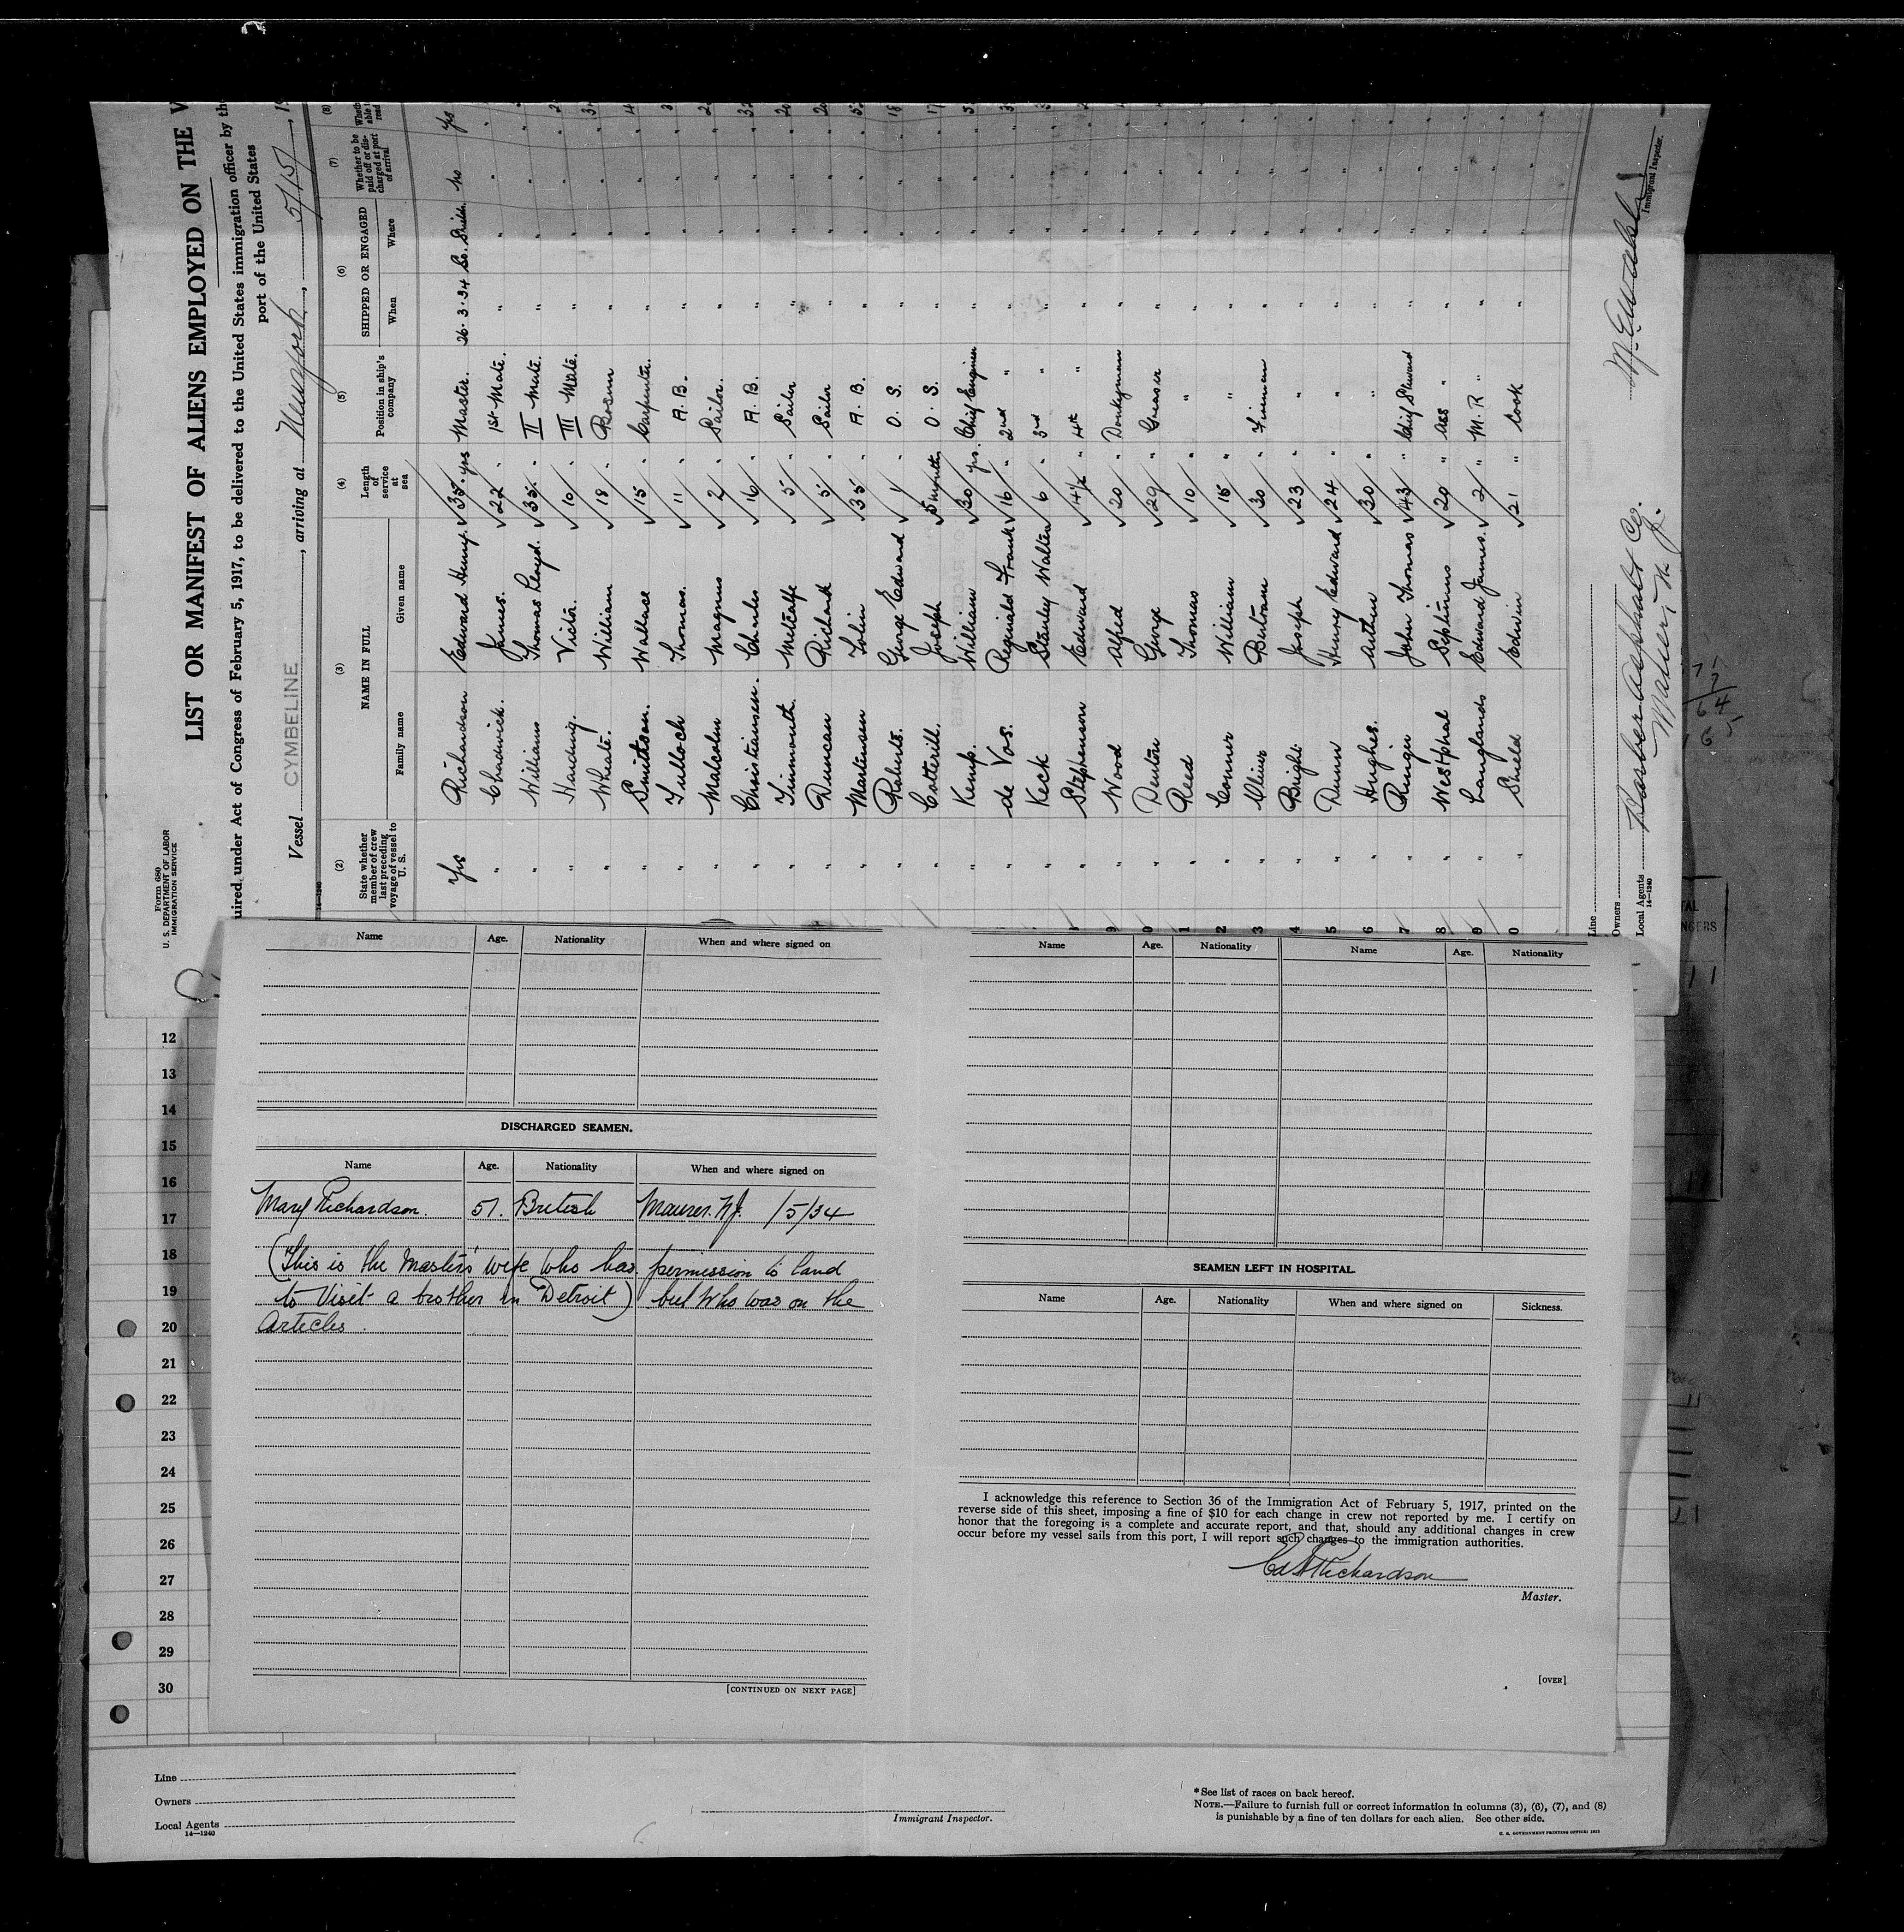 Form 680
U. S. DEPARTMENT OF LABOR
IMMIGRATION SERVICE
LIST OR MANIFEST OF ALIENS EMPLOYED ON THE
uired under Act of Congress of February 5, 1917, to be delivered to the United States immigration officer by th
port of the United States
Vessel CYMBELINE, arriving at Newyork, 5/15/, 19
(2) (3) (4) (5) (6) (7) (8)
State whether member of crew last preceding voyage of vessel to U. S.
NAME IN FULL
Family name Given name
Length of service at sea
Position in ship's company
SHIPPED OR ENGAGED
When Where
Whether to be paid off or discharged at port of arrival
Yes Richardson Edward Henry. 35 yrs Master. 26.3.34 So. Shields no yes
" Chadwick. James. 22 " 1st Mate. " " "
" Williams Thomas Lloyd. 35 " II Mate. " " "
" Harding. Victor. 10 " III Mate. " " "
" Wheate. William 18 " Bosun " " "
" Smitson. Wallace 15 " Carpenter. " " "
" Tulloch Thomas. 11 " A. B. " " "
" Malcolm Magnus 2 " Sailor. " " "
" Christiansen. Charles 16 " A. B. " " "
" Tinmouth. Metcalfe 5 " Sailor " " "
" Duncan Richard 5 " Sailor " " "
" Martensen 35 " A. B. " " "
" Roberts. George Edward 1 " O. S. " " "
" Cotterill. Joseph 5 months O. S. " " "
" Kemp. William 30 yrs. Chief Engineer " " "
" de Vos. Reginald Frank 16 " 2nd " " " "
" Keck Stanley Walter 6 " 3rd " " " "
" Stephenson Edward 14½ " 4th " " " "
" Wood Alfred 20 " Donkeyman " " "
" Denton George 29 " Greaser " " "
" Reed Thomas 10 " " " " "
" Connor William 15 " " " " "
" Oliver Bertram 30 " Fireman " " "
" Bright Joseph 23 " " " " "
" Dunn Henry Edward 24 " " " " "
" Hughes. Arthur 30 " " " " "
" Ringer John Thomas 43 " Chief Steward " " "
" Westphal Septimus 20 " Ass " " " "
" Langlands Edward James. 2 " M. R " " " "
" Shield Edwin 21 " Cook " " "
Line
Owners
Local Agents Barber Asphalt Co.
Maurer, N. J.
14—1240
Immigrant Inspector.
Name Age. Nationality When and where signed on
DISCHARGED SEAMEN.
Name Age. Nationality When and where signed on
Mary Richardson. 51. British Maurer. N.J. /5/34
(This is the Master's wife who has permission to land
to Visit a brother in Detroit) but who was on the
Articles.
[CONTINUED ON NEXT PAGE]
Name Age. Nationality Name Age. Nationality
SEAMEN LEFT IN HOSPITAL.
Name Age. Nationality When and where signed on Sickness.
I acknowledge this reference to Section 36 of the Immigration Act of February 5, 1917, printed on the
reverse side of this sheet, imposing a fine of $10 for each change in crew not reported by me. I certify on
honor that the foregoing is a complete and accurate report, and that, should any additional changes in crew
occur before my vessel sails from this port, I will report such changes to the immigration authorities.
Ed H Richardson
Master.
[OVER]
12
13
14
15
16
17
18
19
20
21
22
23
24
25
26
27
28
29
30
Line
Owners
Local Agents
14—1240
Immigrant Inspector.
* See list of races on back hereof.
NOTE.—Failure to furnish full or correct information in columns (3), (6), (7), and (8)
is punishable by a fine of ten dollars for each alien. See other side.